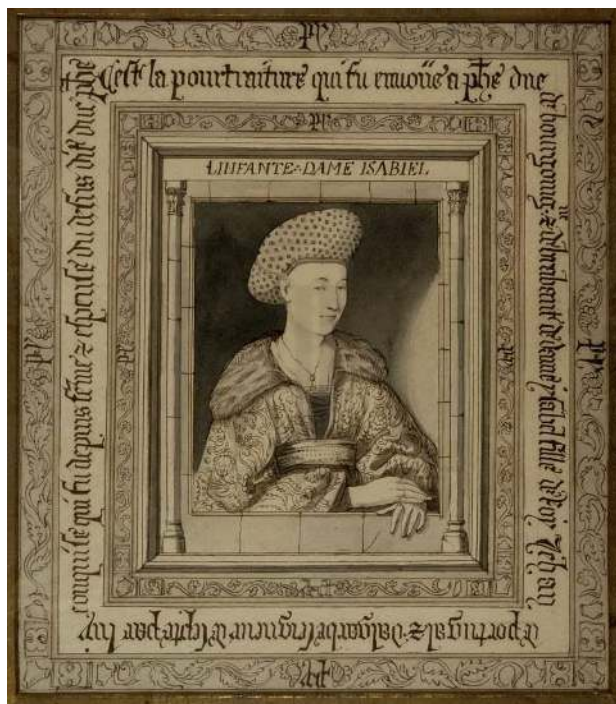 Cest la pourtraiture qui fu enuoiie a phe duc
de bourgoingne & de brabant de dame ysabel fille de Roy Jehan
de portingal & dalgarbe seigneur de septe par luy
conquise qui fu depuis feme & espeuse du desus dit duc phe
LINFANTE DAME ISABIEL